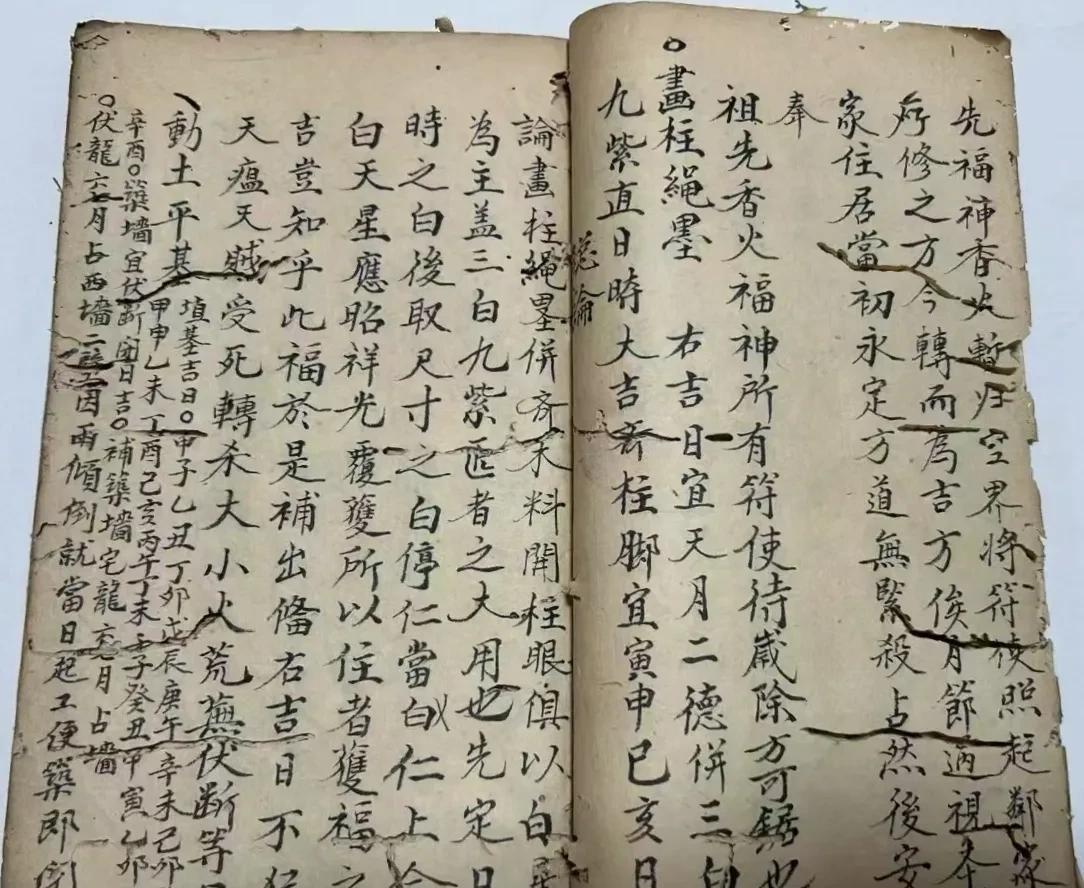 先福神香火暫归空界將符使照起鄰家
所修之方今轉而為吉方俟月節過視本
家住居當初永定方道無緊殺占然後安
奉
祖先香火福神所有符使待歲除方可錢也
○畫柱繩墨 右吉日宜天月二德併三白
九紫直日時大吉齊柱脚宜寅申巳亥日
總論
論畫柱繩墨併齊木料開柱眼俱以白
為主盖三白九紫匠者之大用也先定日
時之白後取尺寸之白停仁當白仪仁上合
白天星應昭祥光覆護所以住者獲福之
吉豈知乎此福於是補出俻右吉日不犯
天瘟天賊受死轉杀大小火荒蕪伏斷等
動土平基 填基吉日○甲子乙丑丁卯戊辰庚午辛未己卯
甲申乙未丁酉己亥丙午丁未壬子癸丑甲寅乙卯
辛酉○築墙宜伏斷閉日吉○補築墻宅龍六七月占墻
○伏龍六七月占西墻二壁因雨傾倒就當日起工便築即